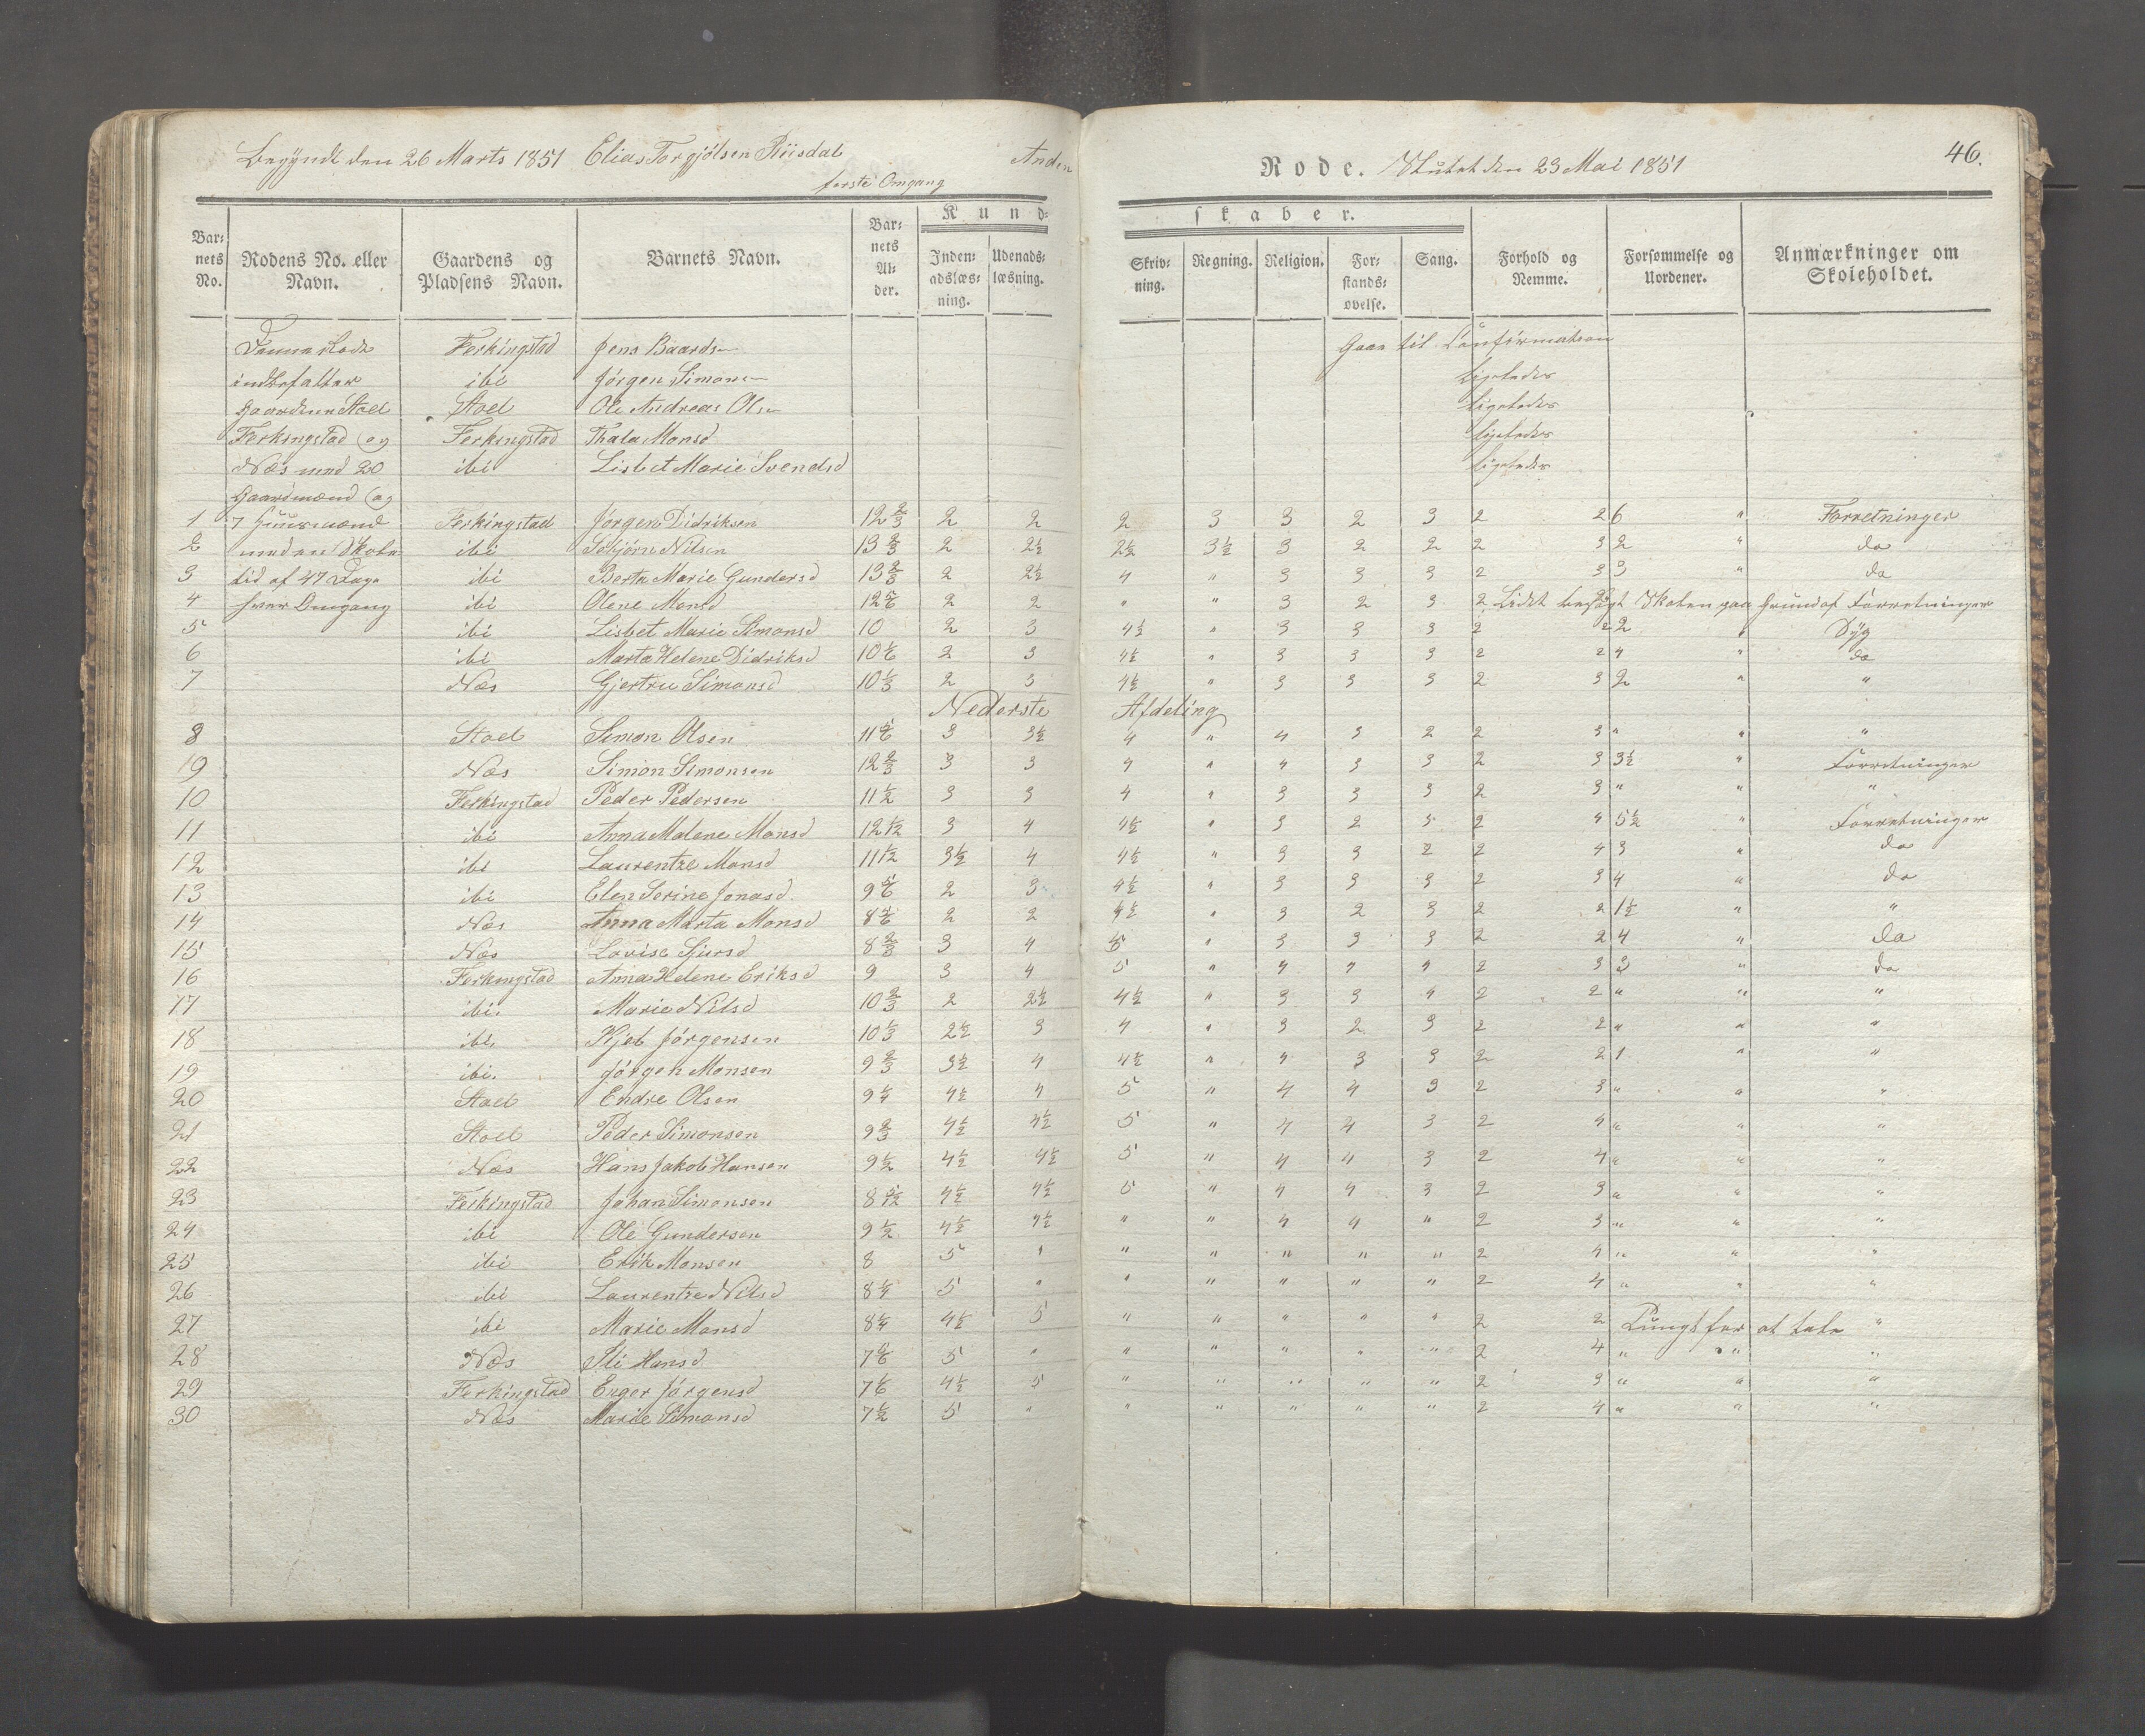 Begyndt den 26 Marts 1851 Elias Torgjølsen Riisdal Anden Rode. Sluttet den 23 Mai 1851 46.
første Omgang
Kundskaber.
Barnets No. Rodens No. eller Navn. Gaardens og Pladsens Navn. Barnets Navn. Barnets Alder. Indenadslæsning. Udenadslæsning. Skrivning. Regning. Religion. Forstandsøvelse. Sang. Forhold og Nemme. Forsømmelse og Uordener. Anmærkninger om Skoleholdet.
Denne Rode Ferkingstad Jens Baards– Gaar til Confirmation
indbefatter ibi Jörgen Simons– ligeledes
Gaardene Stoel Stoel Ole Andreas Olsen ligeledes
Ferkingstad og Ferkingstad Thala Monsd ligeledes
Næs med 20 ibi Lisbet Marie Svendsd ligeledes
Gaardmænd og
1 7 Huusmænd Ferkingstad Jörgen Didriksen 12 2/3 2 2 2 3 3 2 3 2 2 6 " Forretninger
2 med en Skole ibi Nilsen 13 2/3 2 2½ 2½ 3½ 3 2 2 2 3 2 " do
3 tid af 47 Dage ibi Berta Marie Gundersd 13 2/3 2 2½ 4 " 3 3 3 2 3 3 " do
4 hver Omgang ibi Olene Monsd 12 5/6 2 2 " " 3 2 3 2 Lidt besøgt Skolen paa Grund af Forretninger
5 ibi Lisbet Marie Simonsd 10 2 3 4½ " 3 3 3 2 2 2 " Syg
6 ibi Marta Helene Didriksd 10 1/6 2 3 4½ " 3 3 3 2 2 4 " do
7 Næs Gjertru Simonsd 10 1/3 2 3 4½ " 3 3 3 2 3 2 " "
Nederste Afdeling
8 Stoel Simon Olsen 11 5/6 3 3½ 4 " 4 3 2 2 3 " " "
19 Næs Simon Simonsen 12 2/3 3 3 4 " 4 3 3 2 3 3½ " Forretninger
10 Ferkingstad Peder Pedersen 11 ½ 3 3 4 " 3 3 3 2 3 " " "
11 ibi Anna Malene Monsd 12 1/12 3 4 4½ " 3 2 3 2 4 5½ " Forretninger
12 ibi Laurentze Monsd 11 1/2 3½ 4 4½ " 3 3 2 2 4 3 " do
13 ibi Elen Serine Jonasd. 9 5/6 2 3 4½ " 3 3 3 2 3 4 " do
14 Næs Anna Marta Monsd 8 5/6 2 2 4½ " 3 2 3 2 2 1½ " "
15 Næs Lovise Sjursd 8 2/3 3 4 5 " 3 3 3 2 2 4 " do
16 Ferkingstad Anna Helene Eriksd 9 3 4 5 " 4 4 4 2 3 3 " do
17 ibi. Marie Nilsd 10 2/3 2 2½ 4½ " 3 3 4 2 2 " " "
18 ibi. Kjel Jörgensen 10 1/3 2½ 3 4 " 3 2 3 2 2 " " "
19 ibi. Jörgen Monsen 9 2/3 3½ 4 4½ " 4 3 3 2 2 1 " "
20 Stoel Endre Olsen 9 ¼ 4½ 4 5 " 4 4 3 2 3 " " "
21 Stoel Peder Simonsen 9 2/3 4½ 4½ 5 " 4 4 3 2 4 " " "
22 Næs Hans Jakob Hansen 9 ½ 4½ 4½ 5 " 4 4 3 2 4 " " "
23 Ferkingstad Johan Simonsen 8 5/12 4½ 4½ 5 " 4 4 3 2 3 " " "
24 ibi Ole Gundersen 9 ½ 4½ 4½ " " 4 4 " 2 3 " " "
25 ibi Erik Monsen 8 5 " " " " " " 2 4 " " "
26 ibi Laurentze Nilsd 8 ¼ 5 " " " " " " 2 4 " " "
27 ibi Marie Monsd 8 ¼ 4½ 5 " " " " " 2 2 Tungt for at tale "
28 Næs Hansd 7 5/6 5 " " " " " " 2 4 " " "
29 Ferkingstad Enger Jörgensd 7 1/6 4½ 5 " " " " " 2 3 " " "
30 Næs Marie Simonsd 7 ½ 5 " " " " " " 2 4 " " "